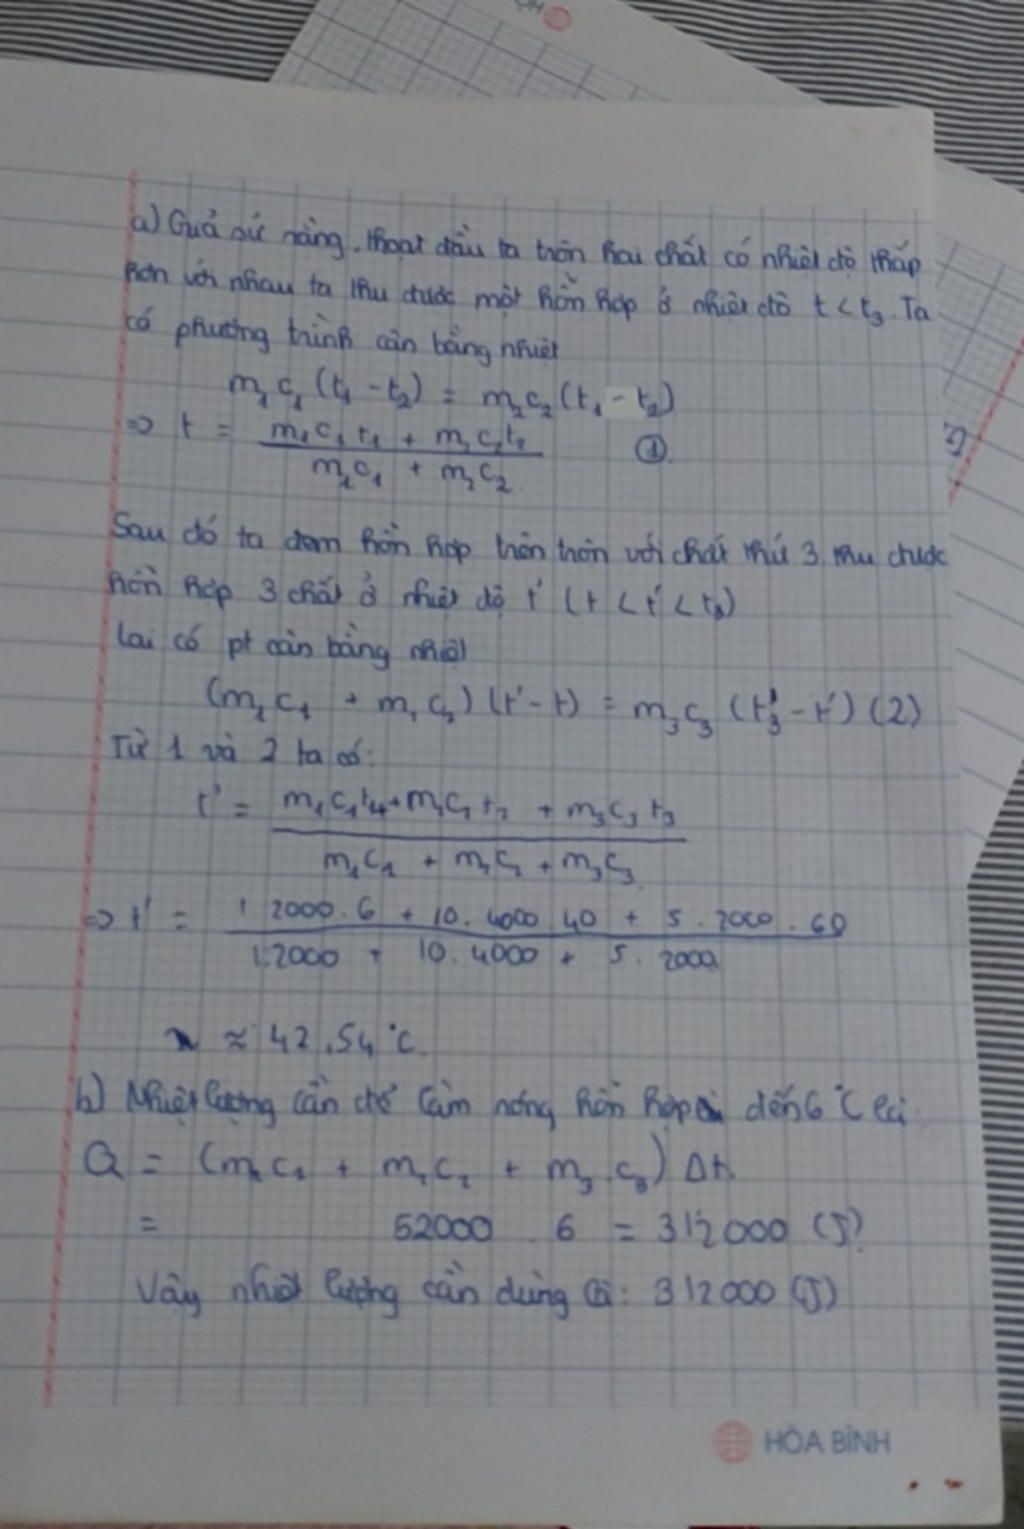 a) Giả sử rằng, thoạt đầu ta trộn hai chất có nhiệt độ thấp
hơn với nhau ta thu được một hỗn hợp ở nhiệt độ t < t₃. Ta
có phương trình cân bằng nhiệt
m₁c₁(t₁ - t₂) = m₂c₂(t₁ - t₂)
=> t = (m₁c₁t₁ + m₂c₂t₂)/(m₁c₁ + m₂c₂) ①
Sau đó ta đem hỗn hợp trên trộn với chất thứ 3 thu được
hỗn hợp 3 chất ở nhiệt độ t' (t < t' < t₃)
Lại có pt cân bằng nhiệt
(m₁c₁ + m₂c₂)(t' - t) = m₃c₃(t₃ - t') (2)
Từ 1 và 2 ta có:
t' = (m₁c₁t₁ + m₂c₂t₂ + m₃c₃t₃)/(m₁c₁ + m₂c₂ + m₃c₃)
=> t' = (1.2000.6 + 10.4000.40 + 5.2000.60)/(1.2000 + 10.4000 + 5.2000)
≈ 42,54°C.
b) Nhiệt lượng cần để làm nóng hỗn hợp đến 6°C là
Q = (m₁c₁ + m₂c₂ + m₃c₃)Δt
= 52000 . 6 = 312000 (J)
Vậy nhiệt lượng cần dùng là: 312000 (J)
HÒA BÌNH